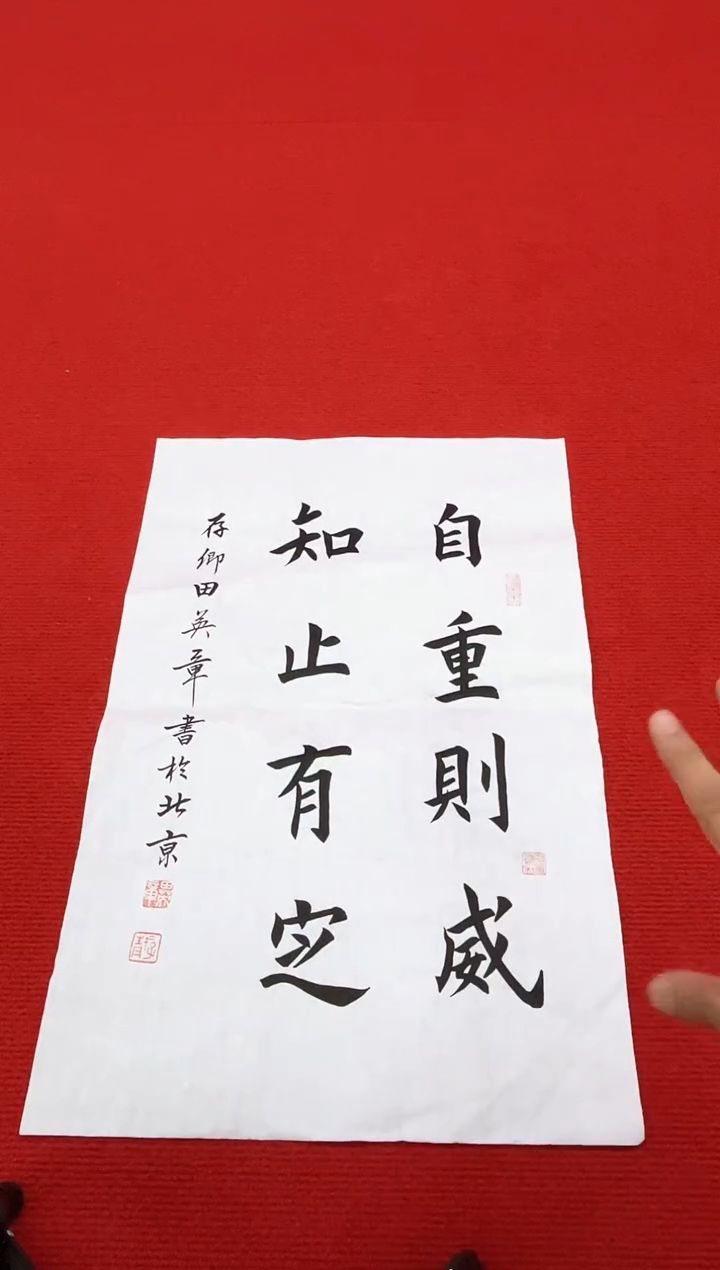 自重則威
知止有定
存卿田英章書於北京